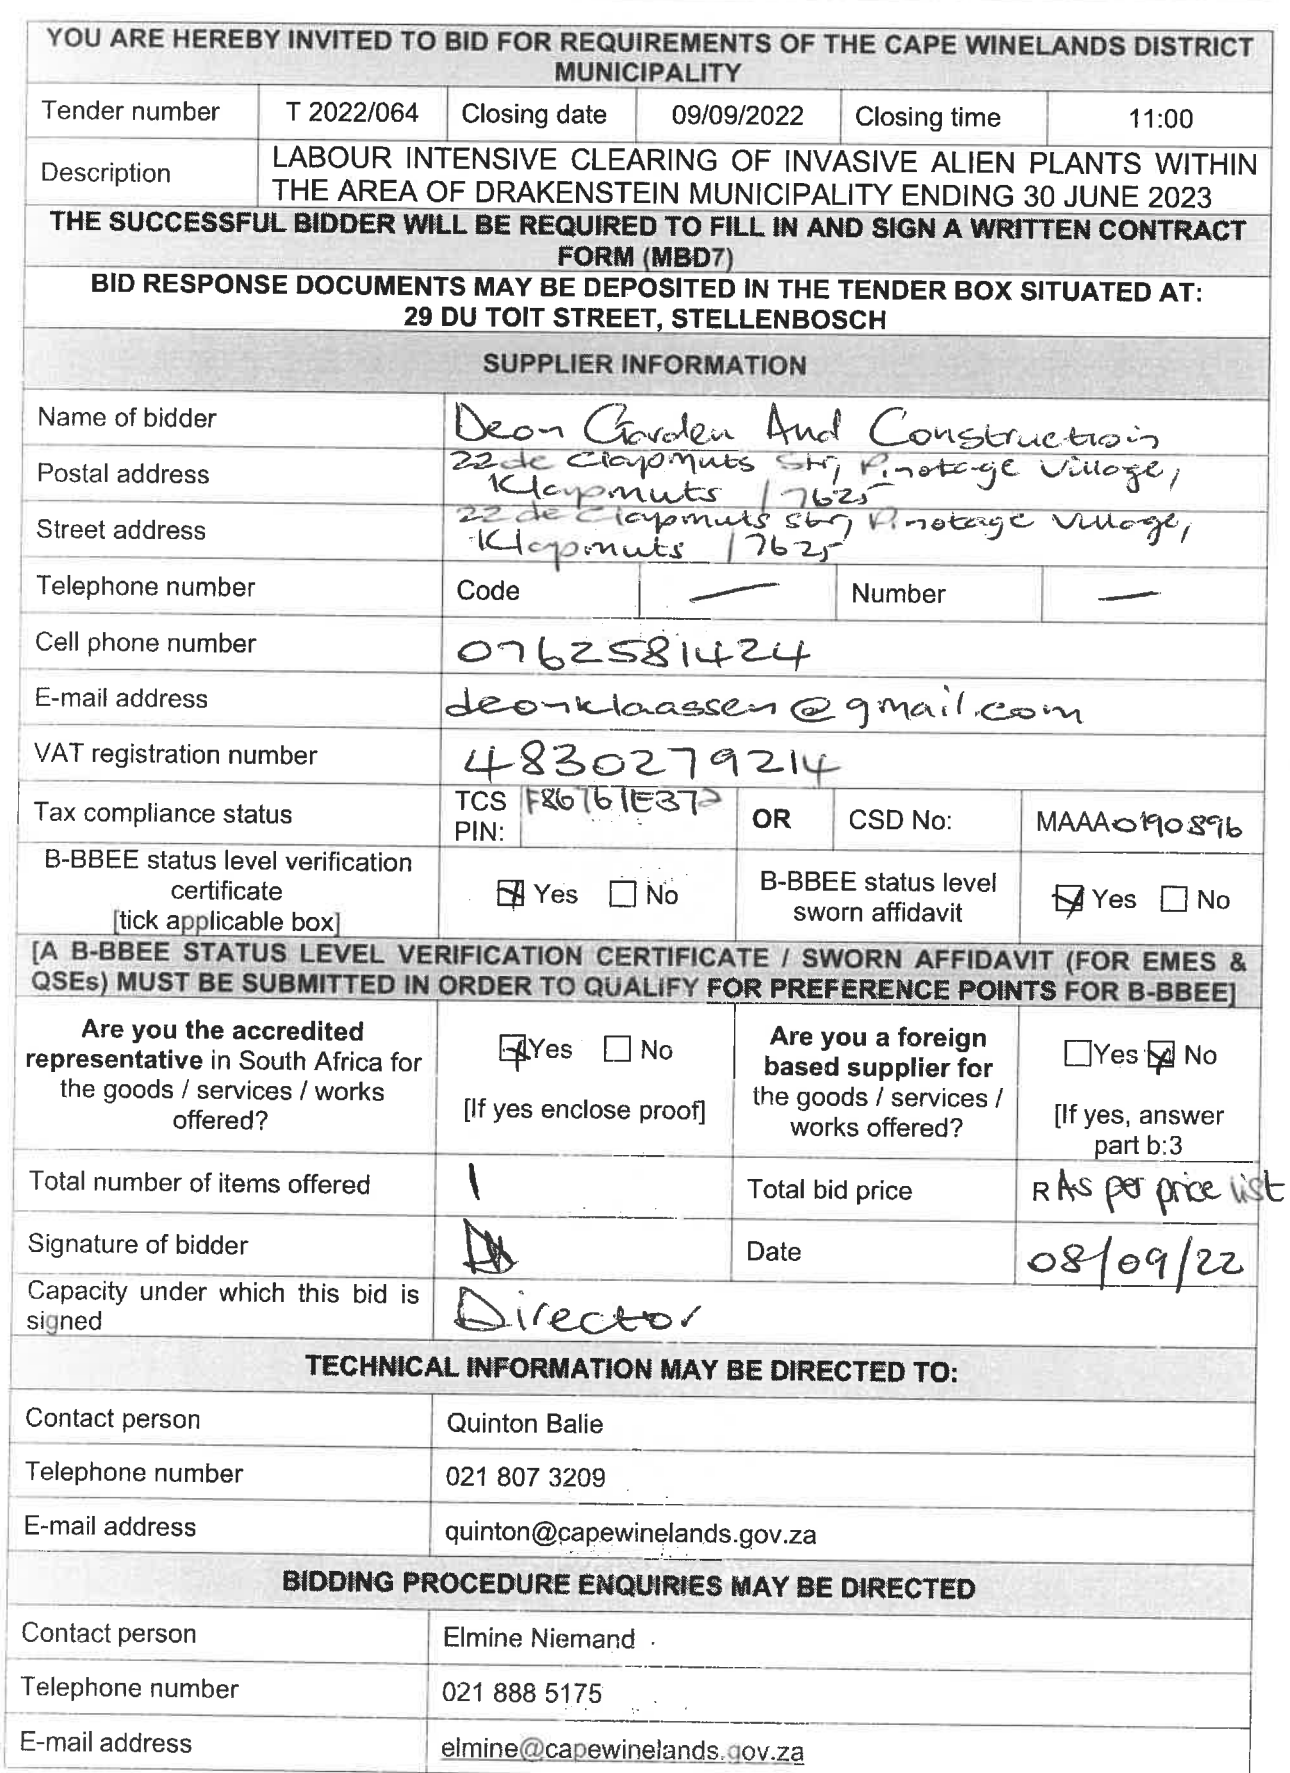 YOU ARE HEREBY INVITED TO BID FOR REQUIREMENTS OF THE CAPE WINELANDS DISTRICT
MUNICIPALITY
Tender number T 2022/064 Closing date 09/09/2022 Closing time 11:00
Description
LABOUR INTENSIVE CLEARING OF INVASIVE ALIEN PLANTS WITHIN
THE AREA OF DRAKENSTEIN MUNICIPALITY ENDING 30 JUNE 2023
THE SUCCESSFUL BIDDER WILL BE REQUIRED TO FILL IN AND SIGN A WRITTEN CONTRACT
FORM (MBD7)
BID RESPONSE DOCUMENTS MAY BE DEPOSITED IN THE TENDER BOX SITUATED AT:
29 DU TOIT STREET, STELLENBOSCH
SUPPLIER INFORMATION
Name of bidder Deon Garden And Construction
Postal address 22 de Clapmuts Str, Pinotage Village,
Klapmuts 17625
Street address 22 de Clapmuts str, Pinotage Village,
Klapmuts 17625
Telephone number Code — Number —
Cell phone number 0762581424
E-mail address deonklaassen@gmail.com
VAT registration number 4830279214
Tax compliance status TCS PIN: OR CSD No: MAAA0190896
B-BBEE status level verification
certificate
[tick applicable box]
Yes No
B-BBEE status level
sworn affidavit
Yes No
[A B-BBEE STATUS LEVEL VERIFICATION CERTIFICATE / SWORN AFFIDAVIT (FOR EMES &
QSEs) MUST BE SUBMITTED IN ORDER TO QUALIFY FOR PREFERENCE POINTS FOR B-BBEE]
Are you the accredited
representative in South Africa for
the goods / services / works
offered?
Yes No
[If yes enclose proof]
Are you a foreign
based supplier for
the goods / services /
works offered?
Yes No
[If yes, answer
part b:3
Total number of items offered 1 Total bid price R As per price list
Signature of bidder Date 08/09/22
Capacity under which this bid is
signed
Director
TECHNICAL INFORMATION MAY BE DIRECTED TO:
Contact person Quinton Balie
Telephone number 021 807 3209
E-mail address quinton@capewinelands.gov.za
BIDDING PROCEDURE ENQUIRIES MAY BE DIRECTED
Contact person Elmine Niemand
Telephone number 021 888 5175
E-mail address elmine@capewinelands.gov.za